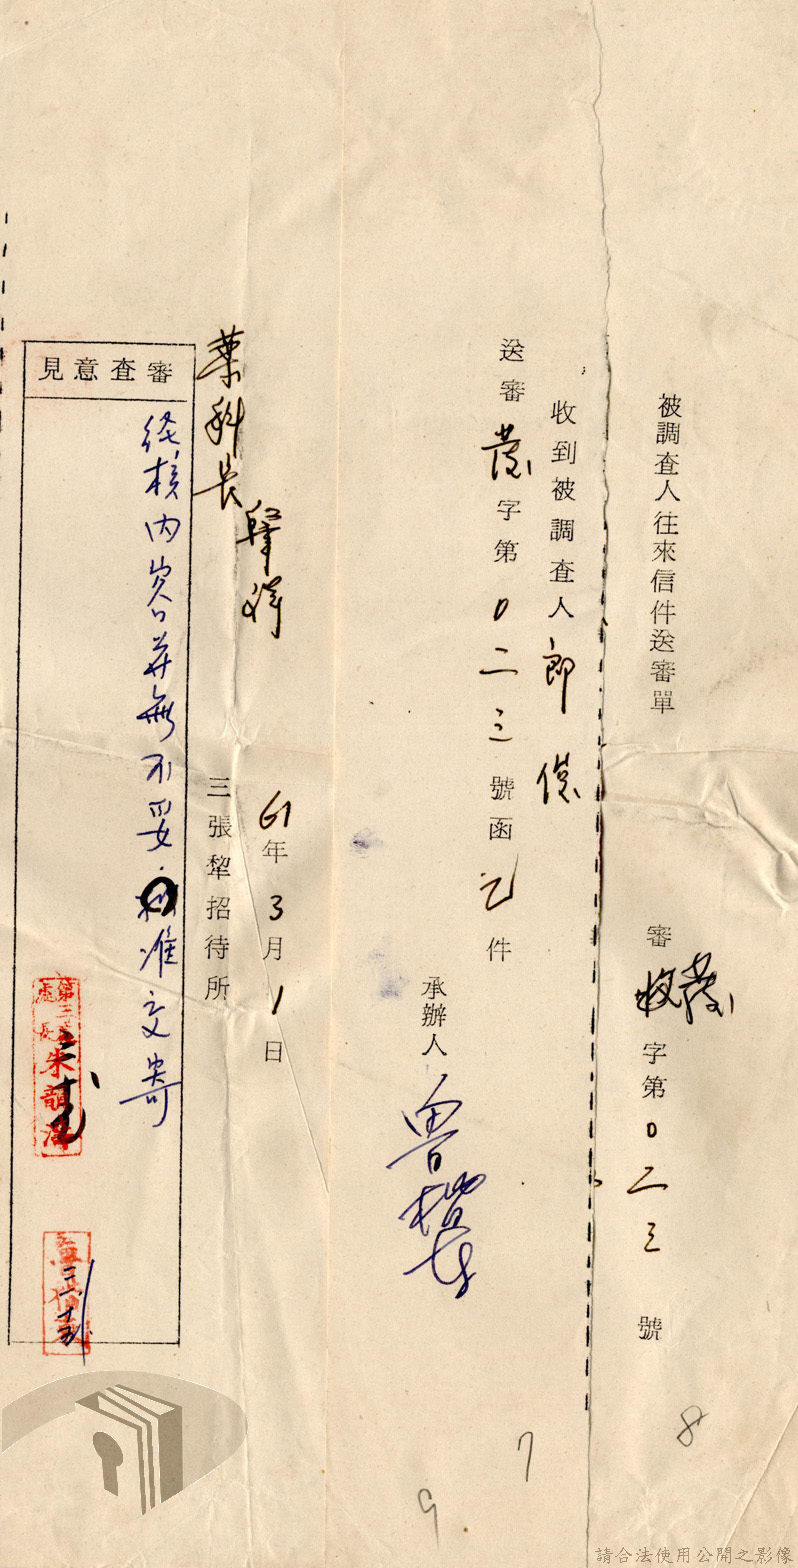 被調查人往來信件送審單
審 發 字第 0 二 三 號
收到被調查人 郎 俊
送審 發 字第 0 二 三 號函 乙 件
承辦人 魯
61 年 3 月 1 日
三張犂招待所
葉科長
審查意見
經核內容並無不妥 准交寄
第三處
處長 朱
請合法使用公開之影像